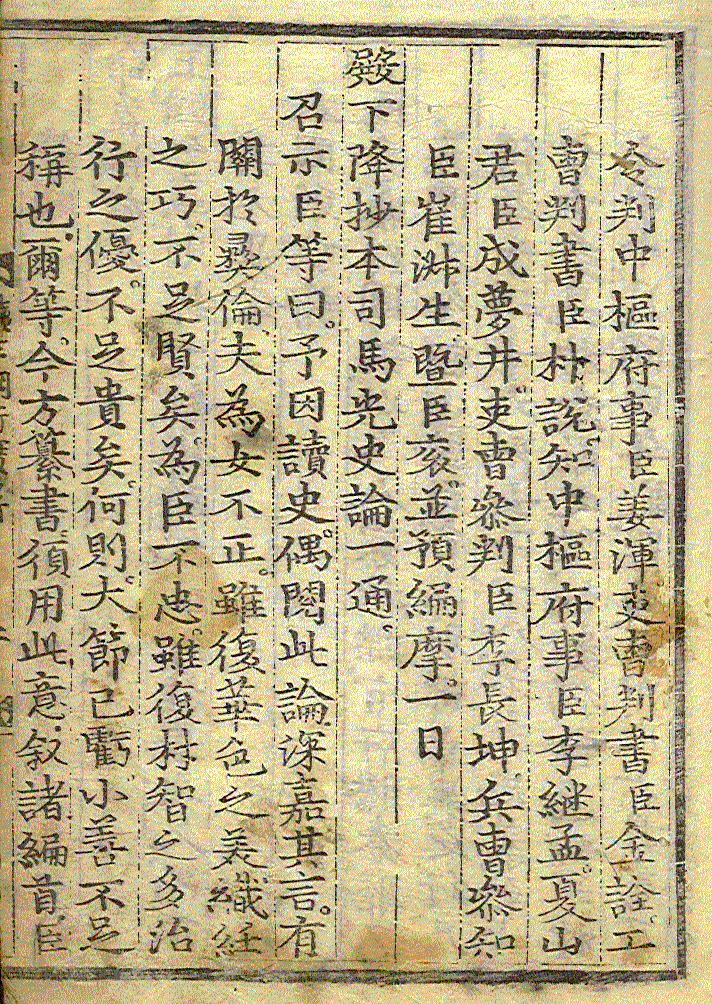 令判中樞府事臣姜渾吏曹判書臣金詮工
曹判書臣朴說知中樞府事臣李継孟夏山
君臣成夢井吏曹叅判臣李長坤兵曹叅知
臣崔淑生曁臣亥並預編摩一日
殿下降抄本司馬光史論一通
召示臣等曰予因讀史偶閱此論深嘉其言有
關於彛倫夫為女不正雖復華色之美織紝
之巧不足賢矣為臣不忠雖復材智之多治
行之優不足貴矣何則大節已虧小善不足
稱也爾等今方纂書須用此意叙諸編首臣